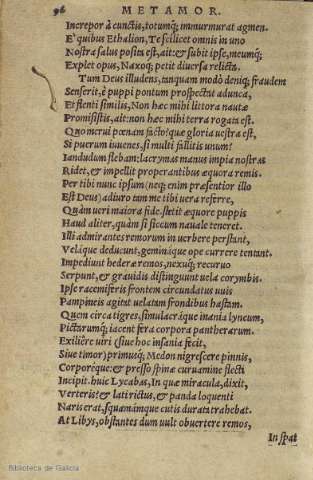 96 METAMOR.
Increpor à cunctis, totumq; immurmurat agmen.
E' quibus Ethalion, Te scilicet omnis in uno
Nostra salus posita est, ait: & subit ipse, meumq;
Explet opus, Naxoq; petit diuersa relicta.
Tum Deus illudens, tanquam modò deniq; fraudem
Senserit, è puppi pontum prospectat adunca,
Et flenti similis, Non hæc mihi littora nautæ
Promisistis, ait: non hæc mihi terra rogata est.
Quo merui pœnam facto? quæ gloria uestra est,
Si puerum iuuenes, si multi fallitis unum?
Iandudum flebam: lacrymas manus impia nostras
Ridet, & impellit properantibus æquora remis.
Per tibi nunc ipsum (neq; enim præsentior illo
Est Deus) adiuro tam me tibi uera referre,
Quàm ueri maiora fide. stetit æquore puppis
Haud aliter, quàm si siccum nauale teneret.
Illi admirantes remorum in uerbere perstant,
Veláque deducunt, geminàque ope currere tentant.
Impediunt hederæ remos, nexuq; recuruo
Serpunt, & grauidis distinguunt uela corymbis.
Ipse racemiferis frontem circundatus uuis
Pampineis agitat uelatam frondibus hastam.
Quem circa tigres, simulacráque inania lyncum,
Pictarumq; iacent fera corpora pantherarum.
Exiliêre uiri (siue hoc insania fecit,
Siue timor) primusq; Medon nigrescere pinnis,
Corporeque: & presso spinæ curuamine flecti
Incipit. huic Lycabas, In quæ miracula, dixit,
Verteris? & lati rictus, & panda loquenti
Naris erat, squamámque cutis durata trahebat.
At Libys, obstantes dum uult obuertere remos,
In spat
Biblioteca de Galicia